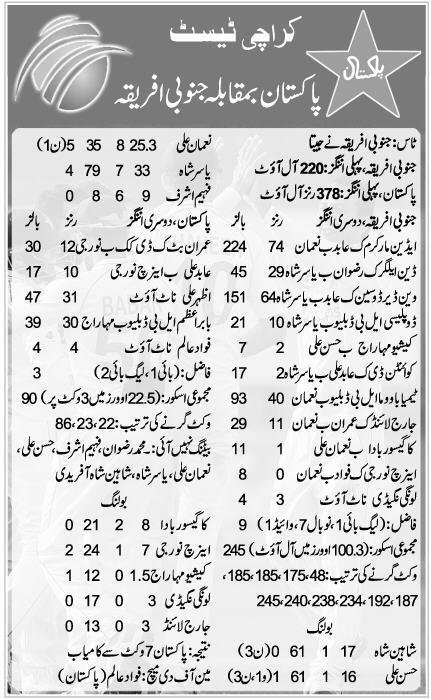 کراچی ٹیسٹ
پاکستان
پاکستان بمقابلہ جنوبی افریقہ
ٹاس: جنوبی افریقہ نے جیتا
جنوبی افریقہ، پہلی اننگز: 220 آل آؤٹ
پاکستان، پہلی اننگز: 378 رنز آل آؤٹ
جنوبی افریقہ، دوسری اننگز رنز بالز
ایڈین مارکرم ک عابد ب نعمان 74 224
ڈین ایلگر ک رضوان ب یاسر شاہ 29 45
وین ڈیر ڈوسین ک عابد ب یاسر شاہ 64 151
ڈوپلیسی ایل بی ڈبلیو ب یاسر شاہ 10 21
کیشیو مہاراج ب حسن علی 2 7
کوائنٹن ڈی ک عابد علی ب یاسر شاہ 2 17
ٹیمبا باووما ایل بی ڈبلیو ب نعمان 40 93
جارج لائنڈ ک عمران ب نعمان 11 29
کاگیسو ربادا ب نعمان علی 1 11
اینرچ نورجی ک فواد ب نعمان 0 8
لونگی نگیڈی ناٹ آؤٹ 3 4
فاضل: (لیگ بائی 1، نو بال 7، وائیڈ 1) 9
مجموعی اسکور: (100.3 اوورز میں آل آؤٹ) 245
وکٹ گرنے کی ترتیب: 48، 175، 185، 185،
187، 192، 234، 238، 240، 245
بولنگ
شاہین شاہ 17 1 61 0 (ن3)
حسن علی 16 1 61 1 (و1، ن3)
نعمان علی 25.3 8 35 5 (ن1)
یاسر شاہ 33 7 79 4
فہیم اشرف 9 6 8 0
پاکستان، دوسری اننگز رنز بالز
عمران بٹ ک ڈی کک ب نورجی 12 30
عابد علی ب اینرچ نورجی 10 17
اظہر علی ناٹ آؤٹ 31 47
بابر اعظم ایل بی ڈبلیو ب مہاراج 30 39
فواد عالم ناٹ آؤٹ 4 4
فاضل: (بائی 1، لیگ بائی 2) 3
مجموعی اسکور: (22.5 اوورز میں 3 وکٹ پر) 90
وکٹ گرنے کی ترتیب: 22، 23، 86
بیٹنگ نہیں آئی: محمد رضوان، فہیم اشرف، حسن علی،
نعمان علی، یاسر شاہ، شاہین شاہ آفریدی
بولنگ
کاگیسو ربادا 8 2 21 0
اینرچ نورجی 7 1 24 2
کیشیو مہاراج 1.5 0 12 1
لونگی نگیڈی 3 0 17 0
جارج لائنڈ 3 0 13 0
نتیجہ: پاکستان 7 وکٹ سے کامیاب
مین آف دی میچ: فواد عالم (پاکستان)